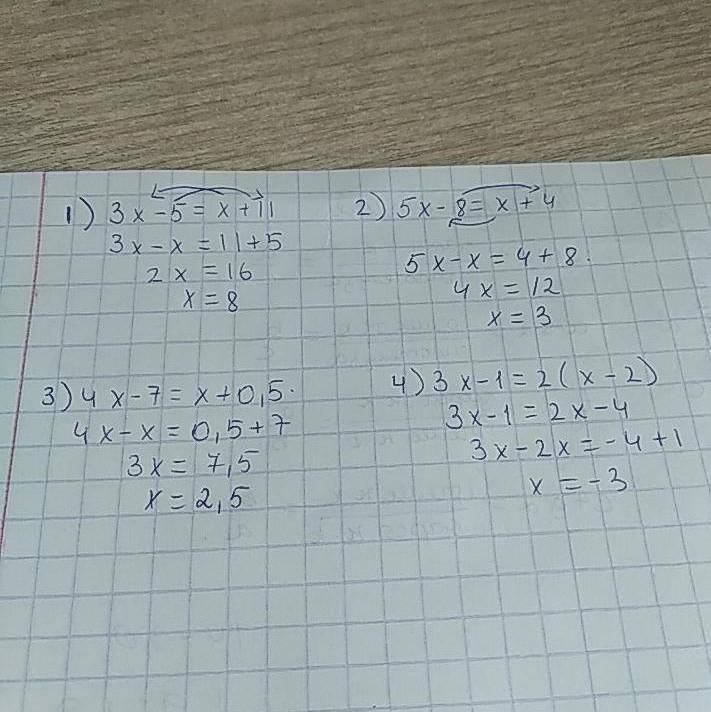 1) 3x-5=x+11
3x-x=11+5
2x=16
x=8
2) 5x-8=x+4
5x-x=4+8
4x=12
x=3
3) 4x-7=x+0,5
4x-x=0,5+7
3x=7,5
x=2,5
4) 3x-1=2(x-2)
3x-1=2x-4
3x-2x=-4+1
x=-3